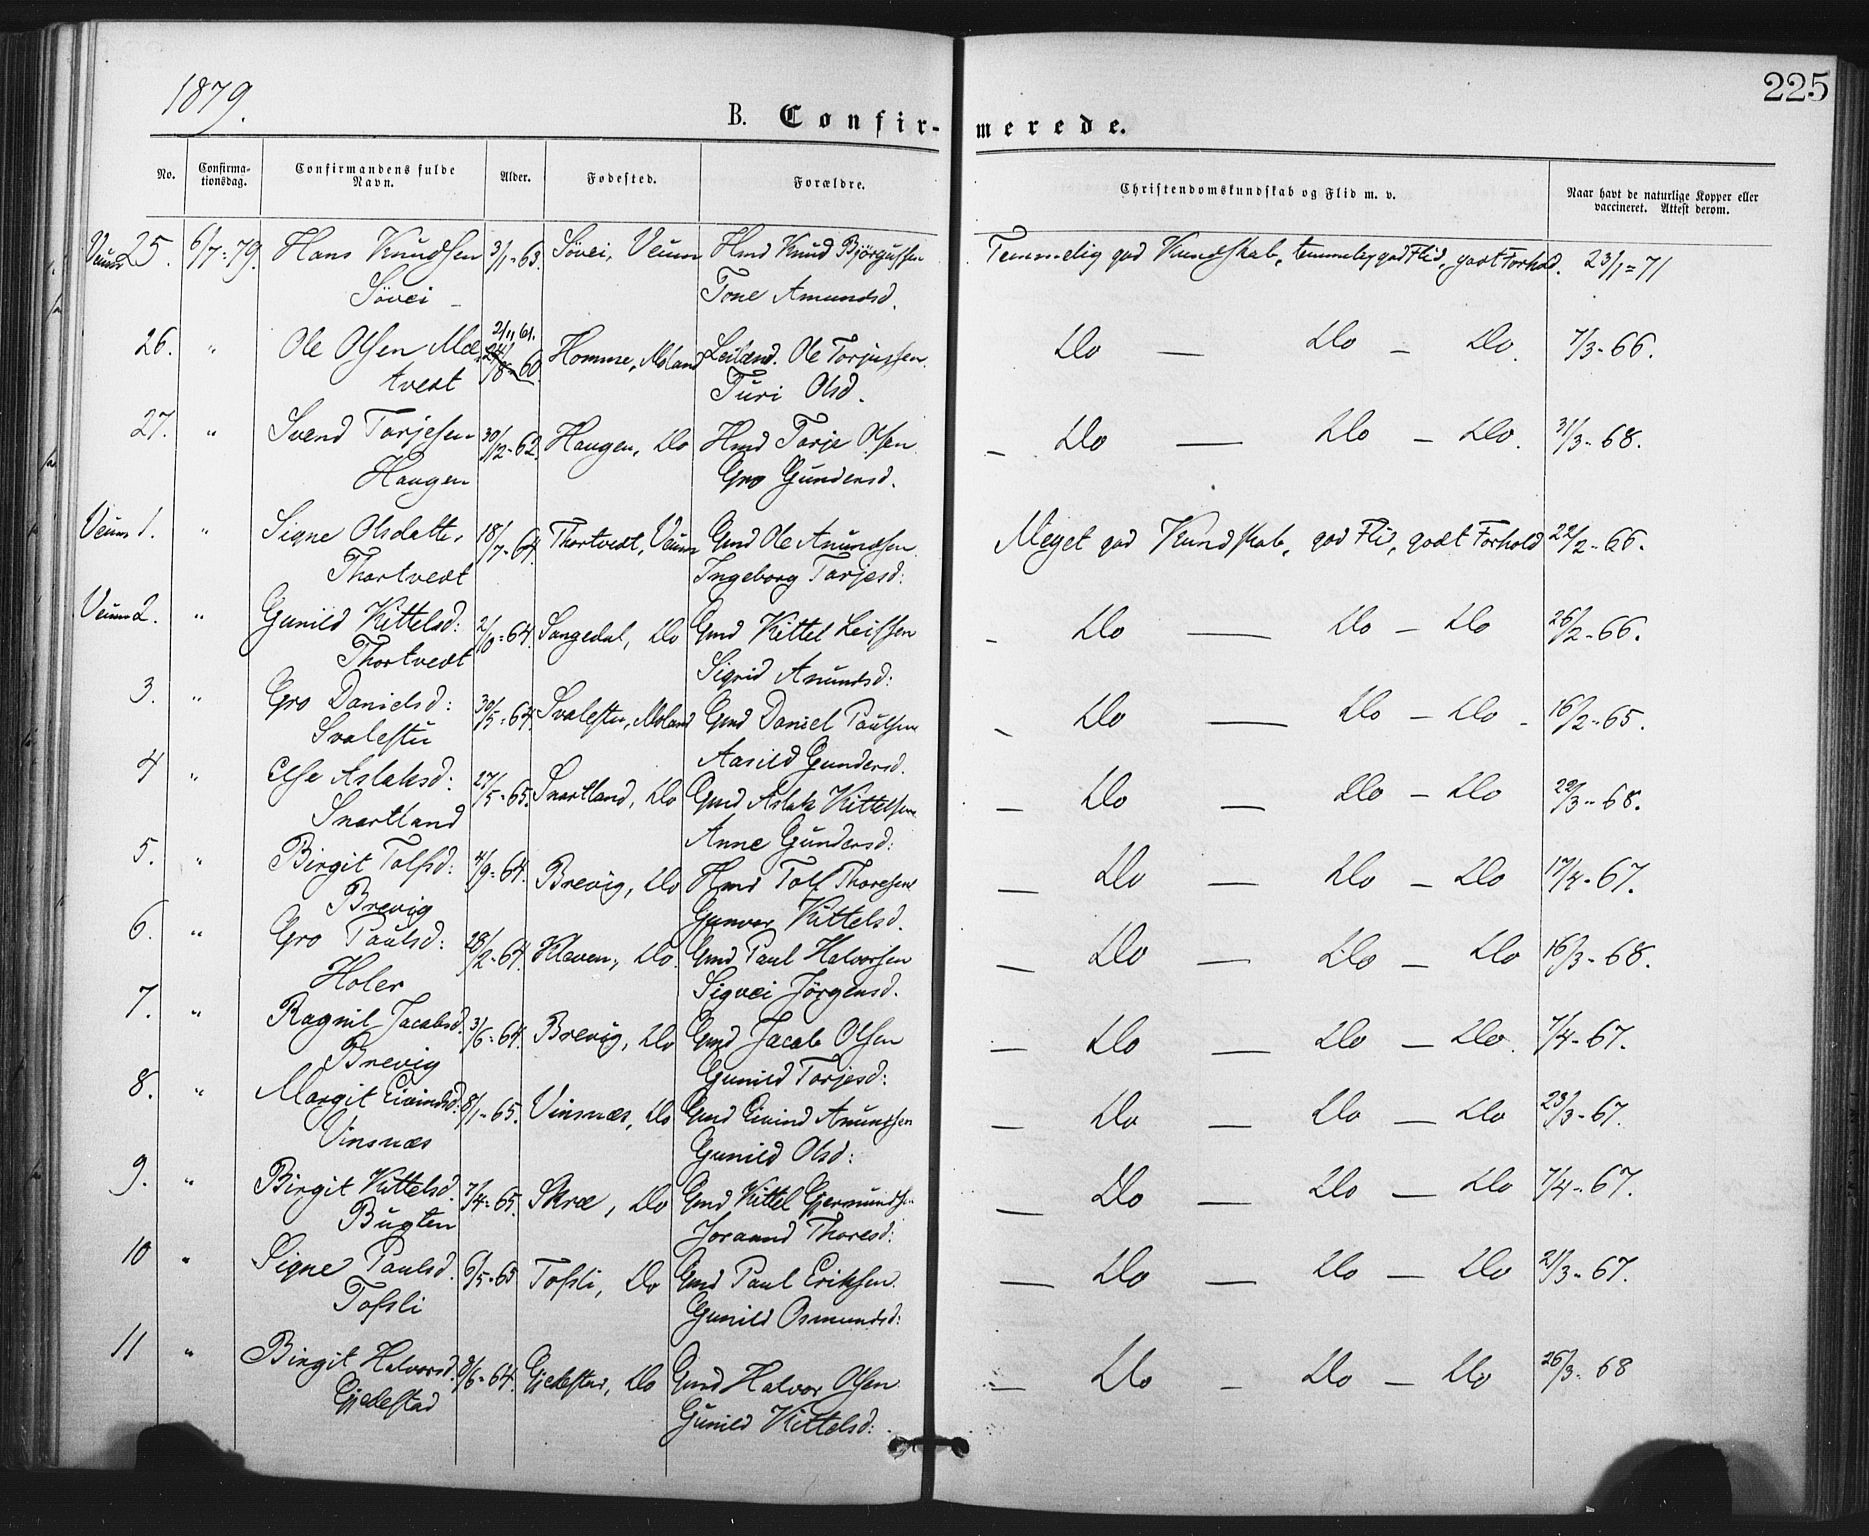 1879.
225
B. Confir- merede.
No.
Confirma-
tionsdag.
Confirmandens fulde
Navn.
Alder.
Fødested.
Forældre.
Christendomskundskab og Flid m. v.
Naar havt de naturlige Kopper eller
vaccineret. Attest derom.
Veum 25. 6/7-79. Hans Knudsen 3/1-63. Søvei, Veum Hmd Knud Bjørgufsen Temmelig god Kundskab, temmelig god Flid, godt Forhold. 23/1=71
Søvei Tone Amundsd.
26. " Ole Olsen 2/11 61. Homme, Moland Leilænd. Ole Torjussen Do — Do — Do. 7/3-66.
tvedt /8-60. Turi Olsd.
27. " Svend Tarjesen 30/12-62. Haugen, Do Hmd Tarje Olsen — Do — Do — Do. 31/3-68.
Haugen Gro Gundersd.
Veum 1. " Signe Olsdatter 18/7-64. Thortvedt, Veum Gmd Ole Anundsen Meget god Kundskab, god Flid, godt Forhold 22/2-66.
Thortvedt Ingeborg Tarjesd:
Veum 2. " Gunild Kittelsd: 2/8-64. Songedal, Do Gmd Kittel Leifsen — Do — Do — Do 26/2-66.
Thortvedt Sigrid Anundsd:
3. " Gro Danielsd: 30/5-64. Svalestu, Moland Gmd Daniel Paulsen — Do — Do — Do - 16/2-65.
Svalestu Aasild Gundersd.
4 " Else Aslaksd: 27/5-65. Snartland, Do Gmd Aslak Kittelsen — Do — Do — Do 22/3-68.
Snartland Anne Gundersd:
5. " Birgit Tolfsd: 4/9-64. Brevig, Do Hmd Tolf Thoresen — Do — Do — Do 17/4-67.
Brevig Gunvor Kittelsd.
6. " Gro Paulsd: 28/2-64. Kleven, Do. Gmd Paul Halvorsen — Do — Do — Do 16/3-68.
Holer Sigvei Jørgensd.
7. " Ragnil Jacobsd. 3/6-64. Brevig, Do Gmd Jacob Olsen — Do — Do — Do. 7/4-67.
Brevig Gunild Torjesd:
8. " Margit Eivindsd: 8/1-65. Vinsnæs, Do Gmd Eivind Anundsen — Do — Do — Do 23/3-67.
Vinsnæs Gunild Olsd:
9. " Birgit Kittelsd. 7/4-65. Skræ, Do Gmd Kittel Gjermunds. — Do — Do — Do 7/4-67.
Bugten Joraand Thoresd:
10 " Signe Paulsd. 6/5-65 Tofsli, Do Gmd Paul Eriksen — Do — Do — Do 21/3-67.
Tofsli Gunild Osmundsd:
11 " Birgit Halvorsd. 9/6-64. Gjelestad, Do Gmd Halvor Olsen — Do — Do — Do 26/3-68
Gjelestad Gunild Kittelsd: